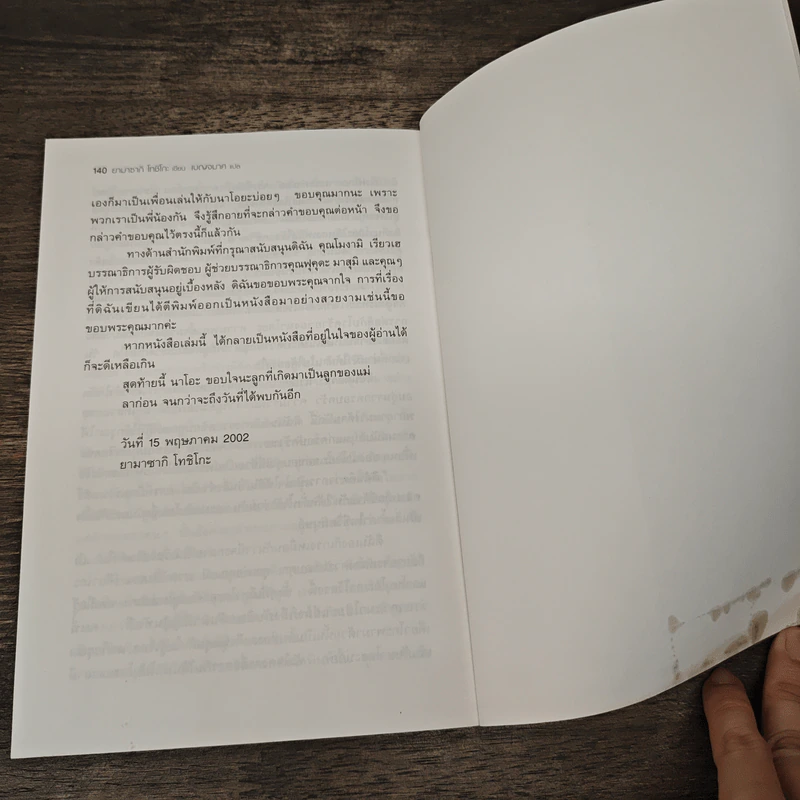 140 ยามาซากิ โทชิโกะ เขียน เบญจมาศ แปล
เองก็มาเป็นเพื่อนเล่นให้กับนาโอยะบ่อยๆ ขอบคุณมากนะ เพราะ
พวกเราเป็นพี่น้องกัน จึงรู้สึกอายที่จะกล่าวคำขอบคุณต่อหน้า จึงขอ
กล่าวคำขอบคุณไว้ตรงนี้ก็แล้วกัน
ทางด้านสำนักพิมพ์ที่กรุณาสนับสนุนดิฉัน คุณโมงามิ เรียวเฮ
บรรณาธิการผู้รับผิดชอบ ผู้ช่วยบรรณาธิการคุณฟุคุดะ มาสุมิ และคุณๆ
ผู้ให้การสนับสนุนอยู่เบื้องหลัง ดิฉันขอขอบพระคุณจากใจ การที่เรื่อง
ที่ดิฉันเขียนได้ตีพิมพ์ออกเป็นหนังสือมาอย่างสวยงามเช่นนี้ขอ
ขอบพระคุณมากค่ะ
หากหนังสือเล่มนี้ ได้กลายเป็นหนังสือที่อยู่ในใจของผู้อ่านได้
ก็จะดีเหลือเกิน
สุดท้ายนี้ นาโอะ ขอบใจนะลูกที่เกิดมาเป็นลูกของแม่
ลาก่อน จนกว่าจะถึงวันที่ได้พบกันอีก
วันที่ 15 พฤษภาคม 2002
ยามาซากิ โทชิโกะ